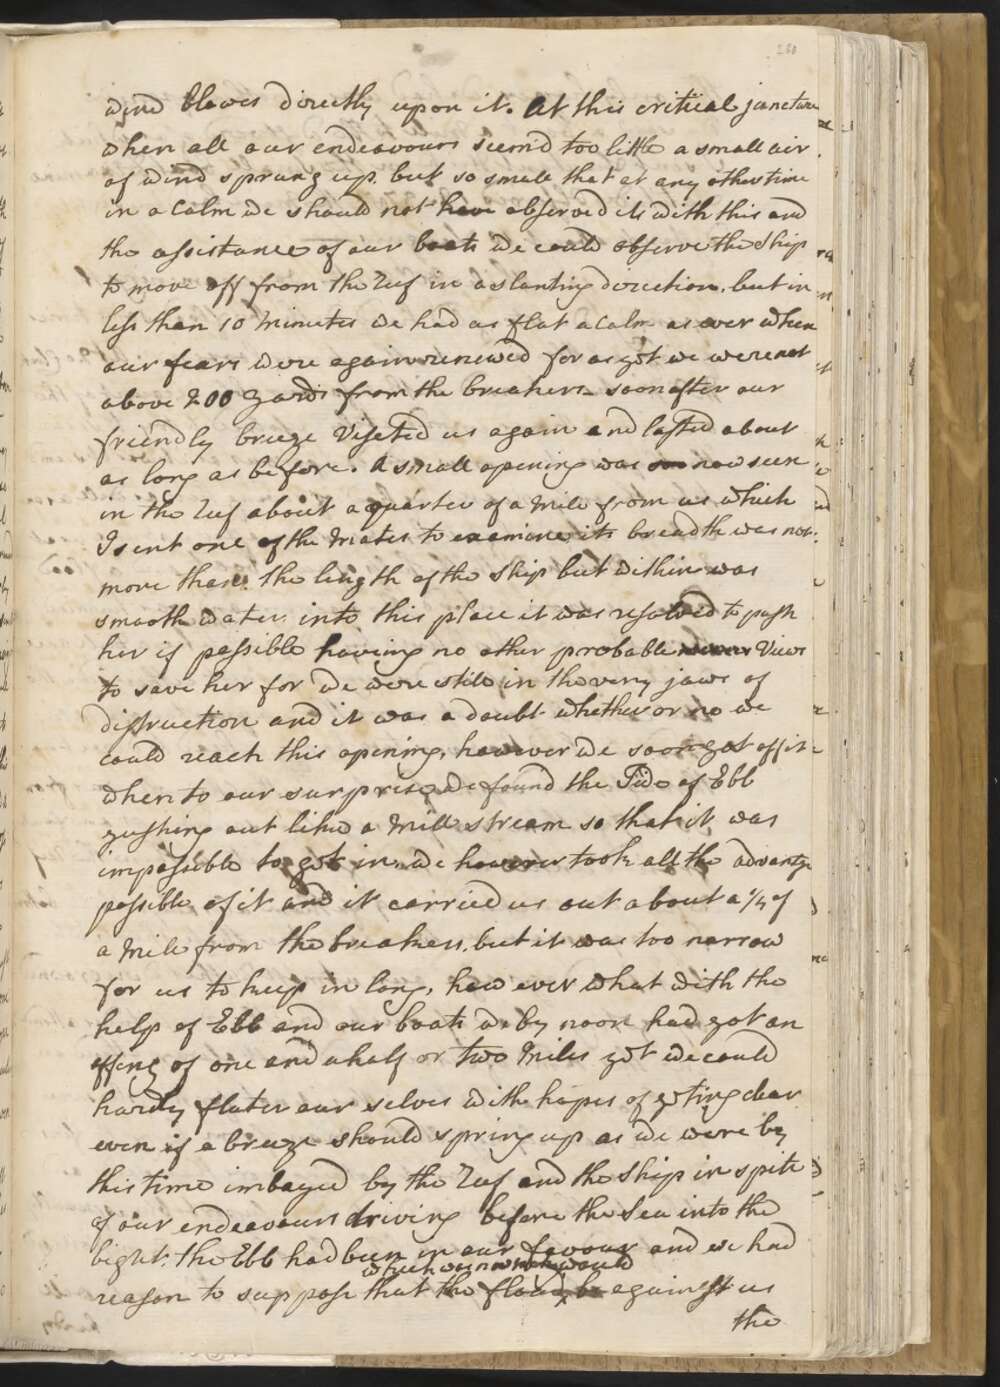 260
wind blowes directly upon it. At this critical juncture
when all our endeavours seem'd too little a small air
of wind sprung up, but so small that at any other time
in a Calm we should not have observed it, with this and
the assistance of our boats we could observe the Ship
to move off from the Reef in a slanting direction, but in
less than 10 Minutes we had as flat a Calm as ever when
our fears were again renewed for as yet we were not
above 200 Yards from the breakers. soon after our
friendly breeze Viseted us again and lasted about
as long as before. A small opening was now seen
in the Reef about a quarter of a Mile from us which
I sent one of the Mates to examine its breadth was not
more than the length of the Ship but within was
smooth water, into this place it was resolved to push
her if possible having no other probable Views
to save her for we were still in the very jaws of
distruction and it was a doubt whether or no we
could reach this opening, however we soon got off it
when to our surprise we found the Tide of Ebb
gushing out like a Mill stream so that it was
impossible to get in, we however took all the advantge
possible of it and it carried us out about a 1/4 of
a Mile from the breakers, but it was too narrow
for us to keep in long, how ever what with the
help of Ebb and our boats we by noon had got an
offing of one and a half or two Miles yet we could
hardly flater our selves with hopes of geting clear
even if a breeze should spring up as we were by
this time imbayed by the Reef and the Ship in spite
of our endeavours driving before the Sea into the
bight. the Ebb had been in our favour and we had
which was now
reason to suppose that the flood be against us
the